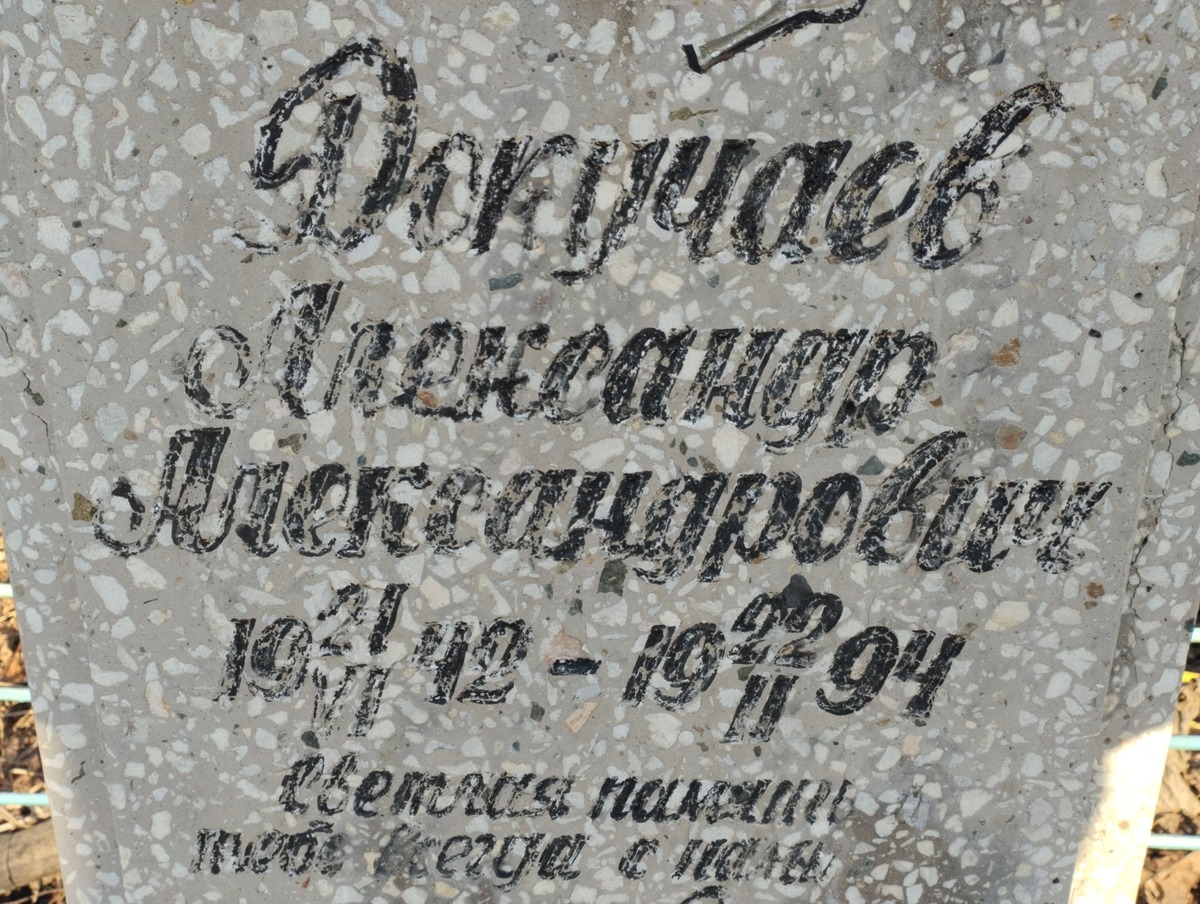 Докучаев
Александр
Александрович
19 21/VI 42 - 19 22/II 94
Светлая память
тебе всегда с нами